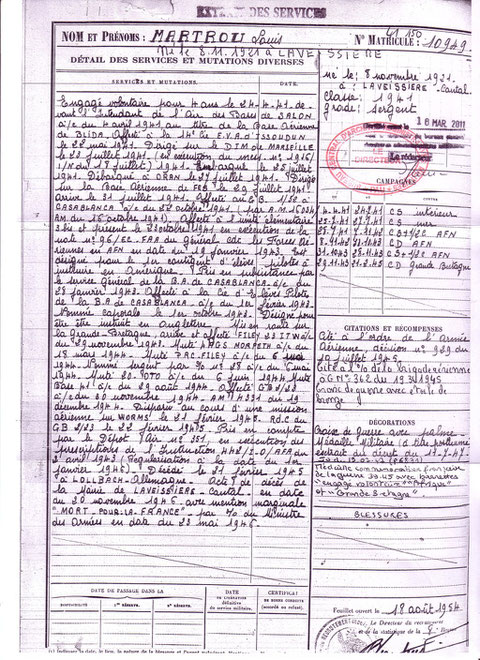 EXTRAIT DES SERVICES
NOM ET PRÉNOMS : MARTROU Louis
Né le 8.11.1921 à LAVEISSIERE
41 150
N° MATRICULE : 10949
DÉTAIL DES SERVICES ET MUTATIONS DIVERSES
SERVICES ET MUTATIONS. DATE.
Engagé volontaire pour 4 ans le 24.4.41 de-
vant l'Intendant de l'Air des Bases de SALON
à/c du 4 avril 1941 au titre de la Base Aérienne
de BLIDA. Affecté à la 14e C.F.V.A. d'ISSOUDUN
le 22 mai 1941. Dirigé sur le D.I.M de MARSEILLE
le 23 juillet 1941 (en exécution du mess. n° 1916/
du 18 juillet) 1941. Embarqué le 25 juillet
1941. Débarqué à ORAN le 27 juillet 1941. Dirigé
sur la Base Aérienne de FEZ le 29 juillet 1941
arrivé le 31 juillet 1941. Affecté au G.B. 1/32 à
CASABLANCA a/c du 27 octobre 1941 (par A.M. 15034
AM. du 15 octobre 1941). Affecté à l'unité élémentaire
3 bis et présent le 23 octobre 1941 en exécution de la
note n° 96/EC. FAA du Général cdt les Forces Aé-
riennes en AFN en date du 19 janvier 1943. Est
désigné pour le 1er contingent d'élèves pilotes à
instruire en Amérique. Pris en subsistance par
le service général de la B.A de CASABLANCA a/c du
28 janvier 1943. Affecté à la Cie d'élèves Pilote
de la B.A de CASABLANCA a/c du 1er février 1943.
Nommé caporal le 1er octobre 1943. Désigné pour
être instruit en Angleterre. Mis en route sur
la Grande-Bretagne, arrivé et affecté FILEY 23 ITW a/c
du 29 novembre 1943. Muté 4 AGS MORPETH a/c du
18 mars 1944. Muté P.A.C. FILEY a/c du 6 mai
1944. Nommé sergent par N° 23 a/c du 6 mai
1944. Muté 20. OTU a/c du 6 juin 1944. Muté
Base 41 a/c du 29 août 1944. Affecté GB 2/23
a/c du 30 novembre 1944 - AM 14331 du 19
décembre 1944. Disparu au cours d'une mission
aérienne sur WORMS le 21 février 1945. RdC du
GB 2/23 le 22 février 1945. Pris en compte
par le Dépôt Air n° 351, en exécution des
prescriptions de l'Instruction 442/E.O/AFA du
3 avril 1943 (Régularisation à la date du 10
janvier 1946). Décédé le 21 février 1945
à LOLLBACH-Allemagne. Acte de décès de
la Mairie de LAVEISSIERE-Cantal- en date
du 20 novembre 1946 avec mention marginale
"MORT-POUR-LA-FRANCE" par N° du Ministre
des Armées en date du 23 mai 1946.
né le : 8 novembre 1921.
à : LAVEISSIERE - Cantal
classe : 1941
grade : sergent
16 MAR. 2011
Le rédacteur
DIRECTEUR
CAMPAGNES
4.4.41 24.7.41 CS intérieur
25.7.41 27.7.41 CS mer
28.7.41 7.11.42 CS+1/2C AFN
8.11.42 30.10.43 CD AFN
31.10.43 28.11.43 CS+1/2C AFN
29.11.43 21.2.45 CD Grande Bretagne
CITATIONS ET RÉCOMPENSES
Cité à l'ordre de l'Armée
Aérienne, décision n° 929 du
10 juillet 1945
Cité à l'o/ de la brigade aérienne
O.G. N° 362 du 19.3.1945
Croix de guerre avec étoile de
bronze
DÉCORATIONS
Croix de guerre avec palme
Médaille Militaire à titre posthume
extrait du décret du 17-7-47
Médaille commémorative française
de la guerre 39-45 avec barrettes
"engagé volontaire" "Afrique"
et "Grande Bretagne"
BLESSURES
DATE DE PASSAGE DANS LA
DISPONIBILITÉ
1re RÉSERVE.
2e RÉSERVE.
DATE
DE LIBÉRATION
définitive
du service militaire.
CERTIFICAT
DE BONNE CONDUITE
(accordé ou refusé).
Feuillet ouvert le 18 août 1954
Le Directeur du recrutement
et de la statistique de la